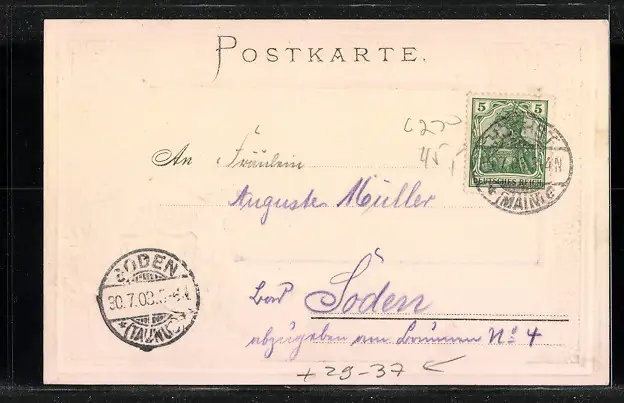 POSTKARTE.
5 5
DEUTSCHES REICH
(MAIN)
An Fräulein
Auguste Müller
Bad Soden
abzugeben am Brunnen No 4
SODEN
30.7.03.
(TAUNUS)
+ 29-37